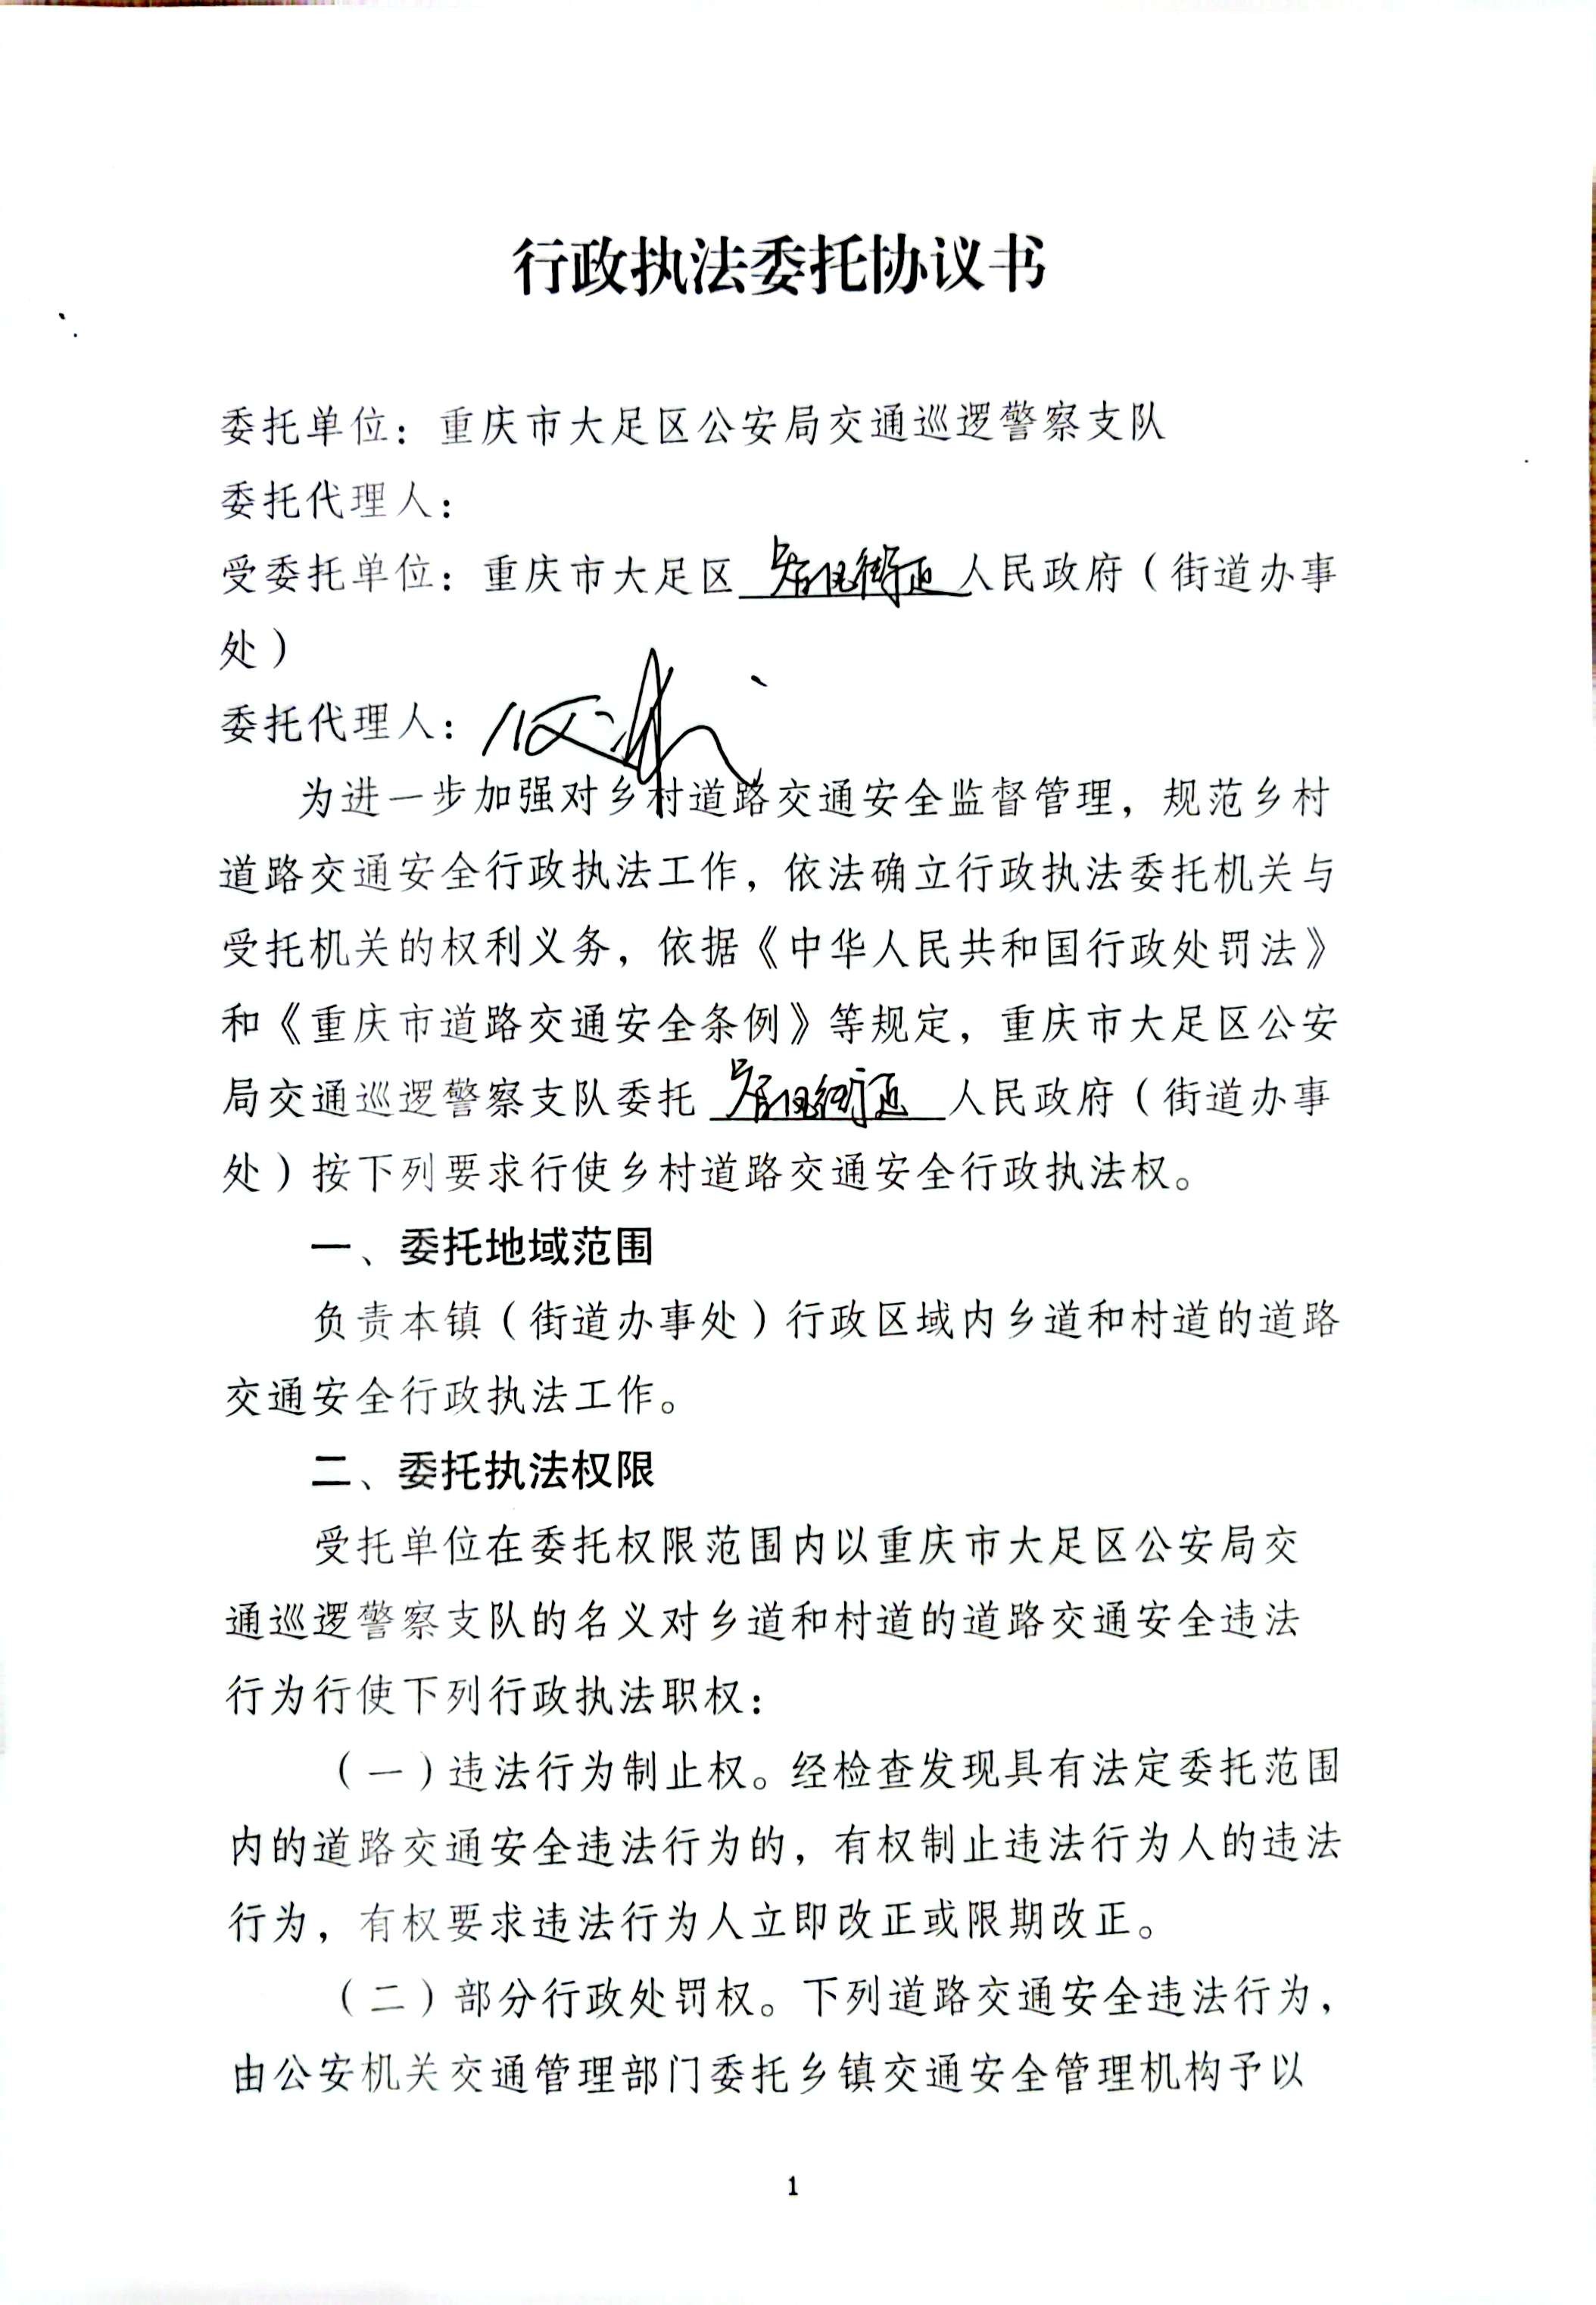 行政执法委托协议书
委托单位：重庆市大足区公安局交通巡逻警察支队
委托代理人：
受委托单位：重庆市大足区 人民政府（街道办事
处）
委托代理人：
为进一步加强对乡村道路交通安全监督管理，规范乡村
道路交通安全行政执法工作，依法确立行政执法委托机关与
受托机关的权利义务，依据《中华人民共和国行政处罚法》
和《重庆市道路交通安全条例》等规定，重庆市大足区公安
局交通巡逻警察支队委托 人民政府（街道办事
处）按下列要求行使乡村道路交通安全行政执法权。
一、委托地域范围
负责本镇（街道办事处）行政区域内乡道和村道的道路
交通安全行政执法工作。
二、委托执法权限
受托单位在委托权限范围内以重庆市大足区公安局交
通巡逻警察支队的名义对乡道和村道的道路交通安全违法
行为行使下列行政执法职权：
（一）违法行为制止权。经检查发现具有法定委托范围
内的道路交通安全违法行为的，有权制止违法行为人的违法
行为，有权要求违法行为人立即改正或限期改正。
（二）部分行政处罚权。下列道路交通安全违法行为，
由公安机关交通管理部门委托乡镇交通安全管理机构予以
1